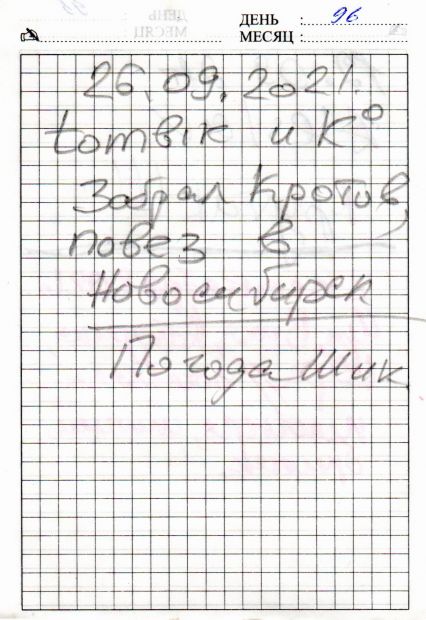 ДЕНЬ : 96
МЕСЯЦ :
26.09.2021.
tomвik и К°
Забрал Кротов,
повез в
Новосибирск
Погода Шик.